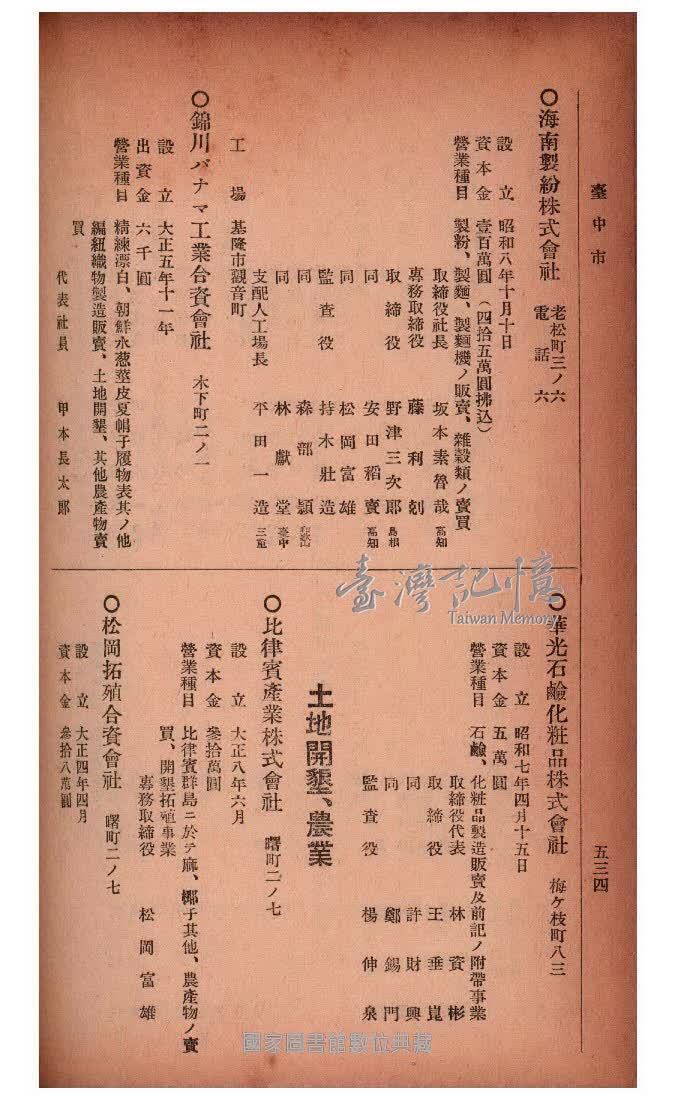 臺中市
五三四
〇海南製紛株式會社 老松町三ノ六
電話 六
設立 昭和八年十月十日
資本金 壹百萬圓(四拾五萬圓拂込)
營業種目 製粉、製麵、製麵機ノ販賣、雜穀類ノ賣買
取締役社長 坂本素魯哉 高知
專務取締役 藤利剋
取締役 野津三次郎 島根
同 安田稻實 高知
同 松岡富雄
監査役 持木壯造
同 森部顯 和歌山
同 林獻堂 臺中
支配人工場長 平田一造 三重
工場 基隆市觀音町
〇錦川パナマ工業合資會社 木下町二ノ一
設立 大正五年十一年
出資金 六千圓
營業種目 精練漂白、朝鮮永葱莖皮夏帽子履物表其ノ他
編紐織物製造販賣、土地開墾、其他農產物賣
買
代表社員 甲本長太郎
〇華光石鹼化粧品株式會社 梅ケ枝町八三
設立 昭和七年四月十五日
資本金 五萬圓
營業種目 石鹼、化粧品製造販賣及前記ノ附帶事業
取締役代表 林資彬
取締役 王垂崑
同 許財興
同 鄭錫門
監査役 楊伸泉
土地開墾、農業
〇比律賓產業株式會社 曙町二ノ七
設立 大正八年六月
資本金 參拾萬圓
營業種目 比律賓群島ニ於テ麻、椰子其他、農產物ノ賣
買、開墾拓殖事業
專務取締役 松岡富雄
〇松岡拓殖合資會社 曙町二ノ七
設立 大正四年四月
資本金 參拾八萬圓
臺灣記憶
Taiwan Memory
國家圖書館數位典藏